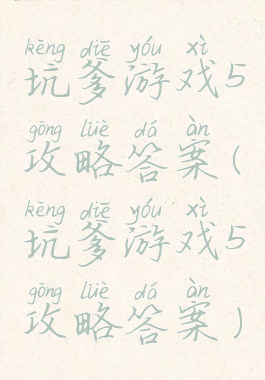 kēng diē yóu xì
坑爹游戏5
gōng lüè dá àn
攻略答案(
kēng diē yóu xì
坑爹游戏5
gōng lüè dá àn
攻略答案)